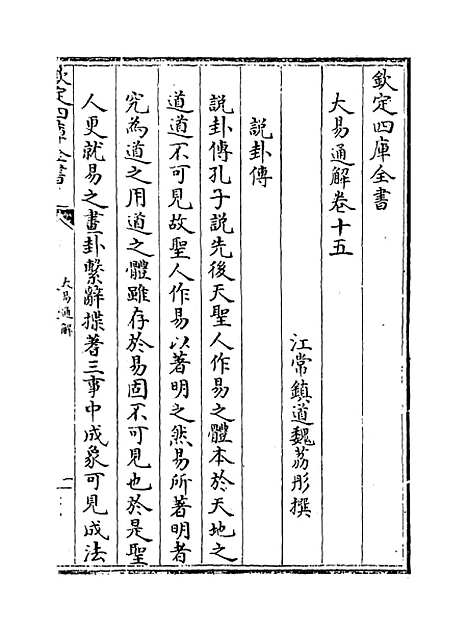 欽定四庫全書
大易通解卷十五
江常鎮道魏荔彤撰
說卦傳
說卦傳孔子說先後天聖人作易之體本於天地之
道道不可見故聖人作易以著明之然易所著明者
究為道之用道之體雖存於易固不可見也於是聖
人更就易之畫卦繫辭揲蓍三事中成象可見成法
欽定四庫全書
大易通解
一